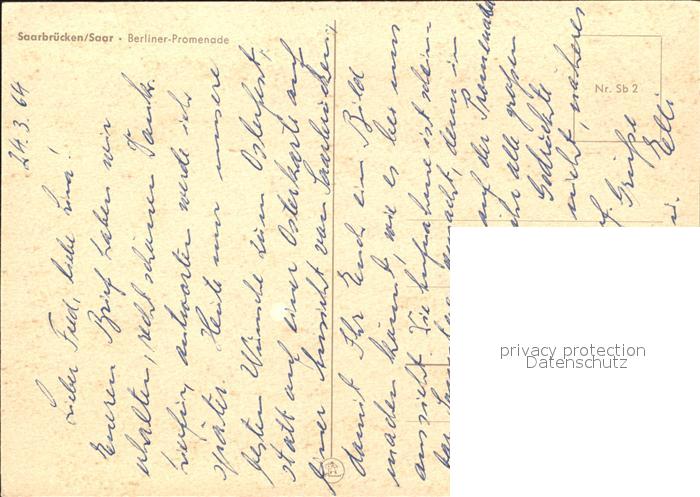 Saarbrücken/Saar • Berliner-Promenade
Nr. Sb 2
24.3.64
Lieber Fred, liebe Ina!
Euren Brief haben wir
erhalten, recht schönen Dank.
antworten werde ich
später. Heute nur unsere
besten Wünsche zum Osterfest,
statt auf einer Osterkarte auf
einer Ansicht von Saarbrücken,
damit Ihr Euch ein Bild
machen könnt, wie es bei uns
aussieht. Die Aufnahme ist
gemacht, denn in
auf der Promenade
alle großen
Geschäfte
nicht, näheres
Grüße
Elli
privacy protection
Datenschutz